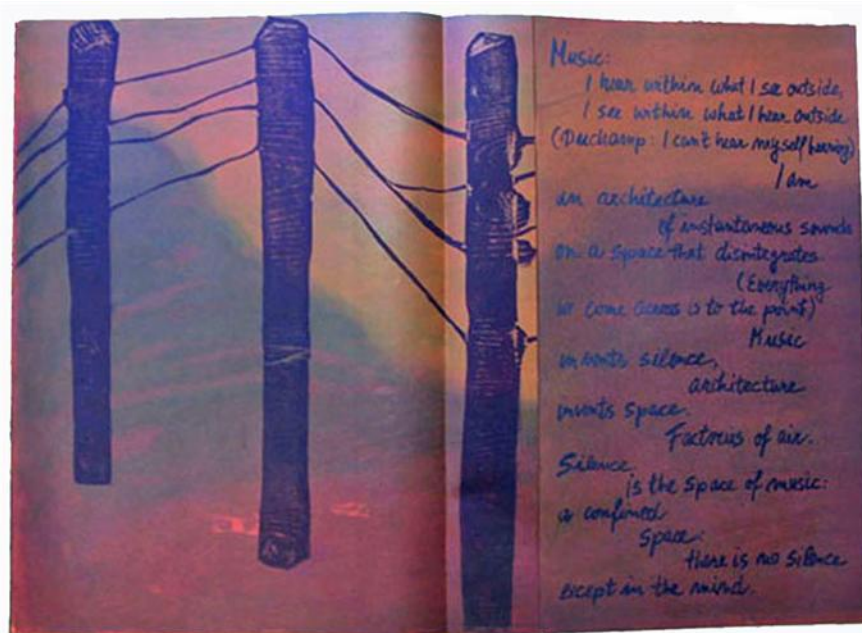 Music:
I hear within what I see outside,
I see within what I hear outside
(Duchamp: I can't hear myself hearing)
I am
an architecture
of instantaneous sounds
on a space that disintegrates
(Everything
we come across is to the point)
Music
invents silence,
architecture
invents space.
Factories of air.
Silence
is the space of music:
a confined
space:
there is no silence
except in the mind.